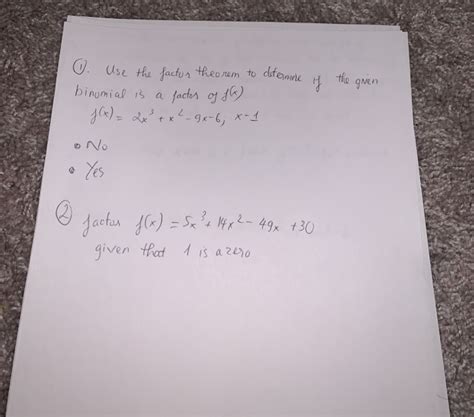 ①. Use the factor theorem to determine if the given
binomial is a factor of f(x)
f(x) = 2x³ + x² - 9x - 6, x - 1
• No
• Yes
② factor f(x) = 5x³ + 14x² - 49x + 30
given that 1 is a zero